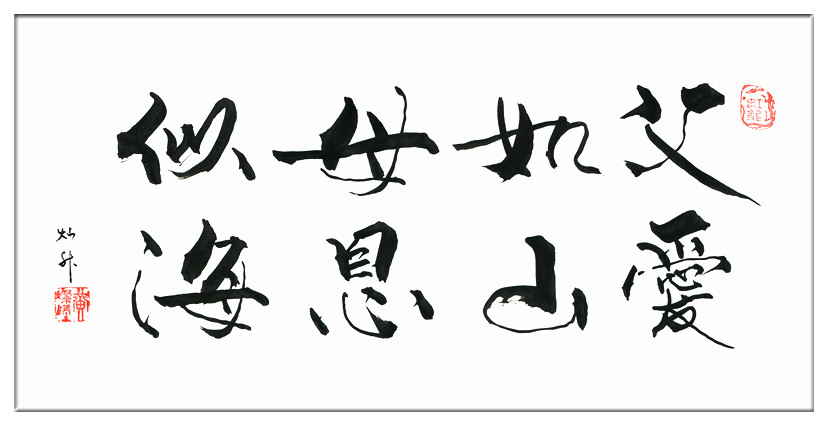 父愛
如山
母恩
似海
灿升